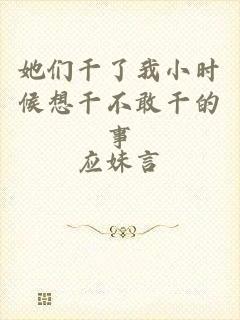 她们干了我小时
候想干不敢干的
事
应妹言